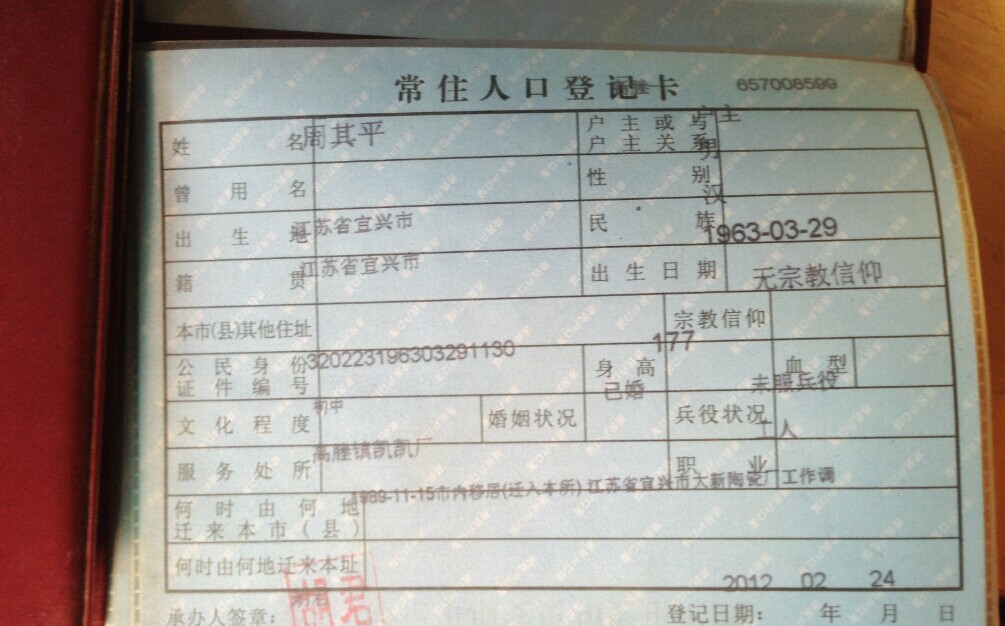 常住人口登记卡 657008599
姓名 周其平 户主或与户主关系 户主
曾用名 性别 男
出生地 江苏省宜兴市 民族 汉
籍贯 江苏省宜兴市 出生日期 1963-03-29
本市(县)其他住址 宗教信仰 无宗教信仰
公民身份证件编号 320223196303291130 身高 177 血型
文化程度 初中 婚姻状况 已婚 兵役状况 未服兵役
服务处所 高塍镇凯凯厂 职业 工人
何时由何地迁来本市(县) 1989-11-15市内移居(迁入本所) 江苏省宜兴市大新陶瓷厂 工作调
何时由何地迁来本址
承办人签章: 胡君 登记日期: 2012 年 02 月 24 日